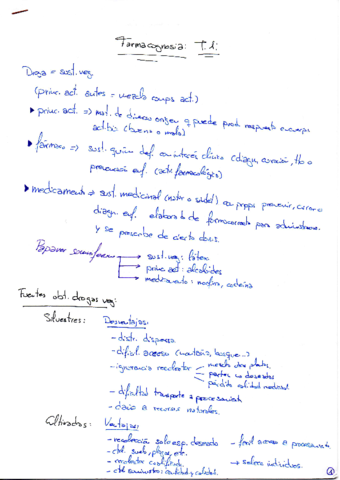 Farmacognosia: T.1:
Droga = sust. veg.
(princ. act. antes = mezcla comps act.)
princ. act. => mat. de diverso origen q puede prod. respuesta en cuerpo
(bueno o malo)
fármaco => sust. quím. def. con interés clínico (diagn., curación, tto o
prevención enf. (acto farmacológico)
medicamento => sust. medicinal (natur o sintet) con props prevenir, curar o
diagn. enf. elaborado de formacorrecta para administrarse
y se prescribe de cierta dosis.
Papaver somniferum
→ sust. veg: látex
→ princ. act: alcaloides
→ medicamento: morfina, codeína
Fuentes obt. drogas veg:
Silvestres: Desventajas:
- distr. dispersa.
- dificil acceso (montaña, bosque...)
- ignorancia recolector
mezcla dros plantas.
partes no deseadas
pérdida calidad medicinal
- dificultad transporte a procesamiento
- daño a recursos naturales.
Cultivados: Ventajas:
- recolección solo esp. deseada
- fácil acceso a procesamiento.
- ctrl. suelo, plagas, etc.
- recolector cualificado.
→ selecc individuos.
- ctrl suministro: cantidad y calidad.
1